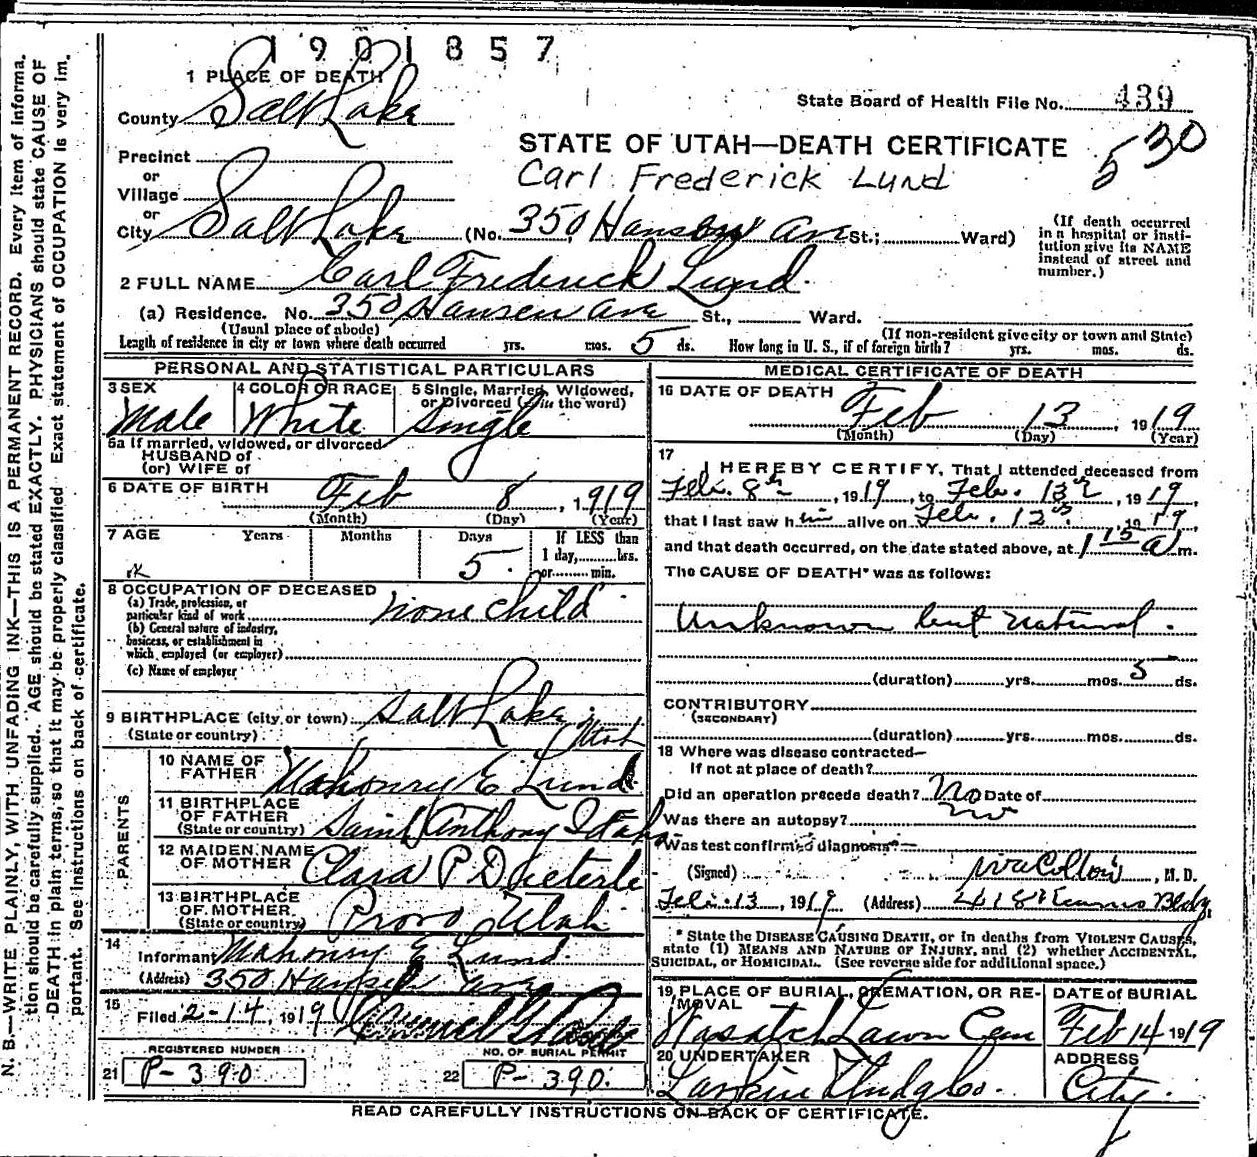 1901857
1 PLACE OF DEATH
County Salt Lake
State Board of Health File No. 439
STATE OF UTAH—DEATH CERTIFICATE
530
Carl Frederick Lund
Precinct
or
Village
or
City Salt Lake (No. 350, Hansen Ave St.; Ward)
(If death occurred in a hospital or institution give its NAME instead of street and number.)
2 FULL NAME Carl Frederick Lund
(a) Residence. No. 350 Hansen Ave St., Ward.
(Usual place of abode) (If non-resident give city or town and State)
Length of residence in city or town where death occurred yrs. mos. 5 ds. How long in U. S., if of foreign birth? yrs. mos. ds.
PERSONAL AND STATISTICAL PARTICULARS
3 SEX Male
4 COLOR OR RACE White
5 Single, Married, Widowed, or Divorced (write the word) Single
5a If married, widowed, or divorced
HUSBAND of
(or) WIFE of
6 DATE OF BIRTH Feb 8, 1919
(Month) (Day) (Year)
7 AGE Years Months Days 5 If LESS than
1 day, hrs.
or min.
8 OCCUPATION OF DECEASED none child
(a) Trade, profession, or
particular kind of work
(b) General nature of industry,
business, or establishment in
which employed (or employer)
(c) Name of employer
9 BIRTHPLACE (city, or town) Salt Lake
(State or country) Utah
PARENTS
10 NAME OF FATHER Mahonry E Lund
11 BIRTHPLACE OF FATHER (State or country) Saint Anthony Idaho
12 MAIDEN NAME OF MOTHER Clara P Dieterle
13 BIRTHPLACE OF MOTHER (State or country) Provo Utah
14 Informant Mahonry E Lund
(Address) 350 Hansen Ave
15 Filed 2-14, 1919
REGISTERED NUMBER
21 P-390
NO. OF BURIAL PERMIT
22 P-390.
MEDICAL CERTIFICATE OF DEATH
16 DATE OF DEATH Feb 13, 1919
(Month) (Day) (Year)
17 I HEREBY CERTIFY, That I attended deceased from
Feb. 8th, 1919, to Feb. 13th, 1919,
that I last saw him alive on Feb. 12th, 1919
and that death occurred, on the date stated above, at 1 15 a m.
The CAUSE OF DEATH* was as follows:
Unknown but Natural.
(duration) yrs. mos. 5 ds.
CONTRIBUTORY
(SECONDARY)
(duration) yrs. mos. ds.
18 Where was disease contracted—
If not at place of death?
Did an operation precede death? No Date of
Was there an autopsy? No
Was test confirmed diagnosis?
(Signed) , M. D.
Feb. 13, 1919 (Address) 418 Kearns Bldg,
* State the DISEASE CAUSING DEATH, or in deaths from VIOLENT CAUSES,
state (1) MEANS AND NATURE OF INJURY, and (2) whether ACCIDENTAL,
SUICIDAL, OR HOMICIDAL. (See reverse side for additional space.)
19 PLACE OF BURIAL, CREMATION, OR REMOVAL Wasatch Lawn Cem
DATE of BURIAL Feb 14 1919
20 UNDERTAKER Larkin Undg Co.
ADDRESS City
READ CAREFULLY INSTRUCTIONS ON BACK OF CERTIFICATE.
N. B.—WRITE PLAINLY, WITH UNFADING INK—THIS IS A PERMANENT RECORD. Every item of informa.
tion should be carefully supplied. AGE should be stated EXACTLY. PHYSICIANS should state CAUSE OF
DEATH in plain terms, so that it may be properly classified. Exact statement of OCCUPATION is very im.
portant. See instructions on back of certificate.